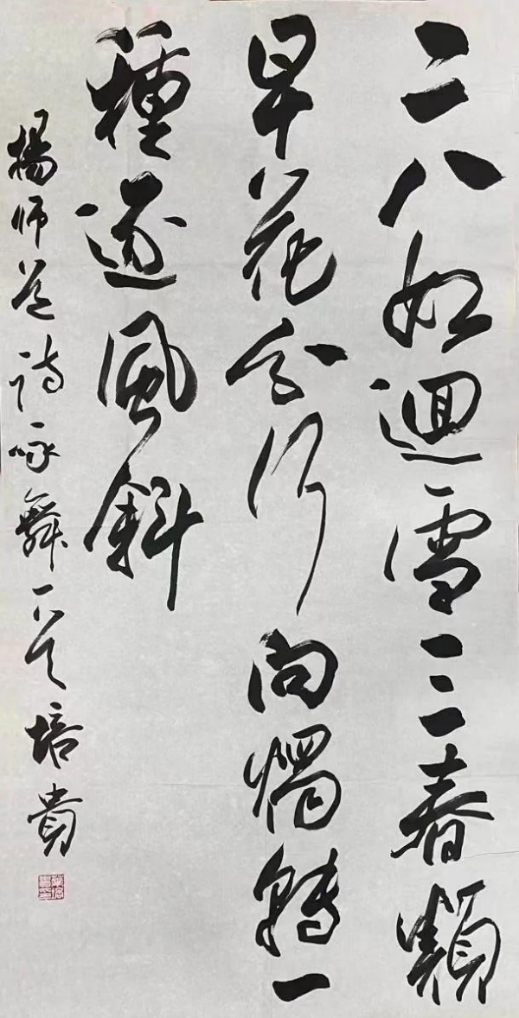 二八如迴雪三春類
早花分行向燭轉一
種逐風斜
楊師道詩咏舞一首培貴